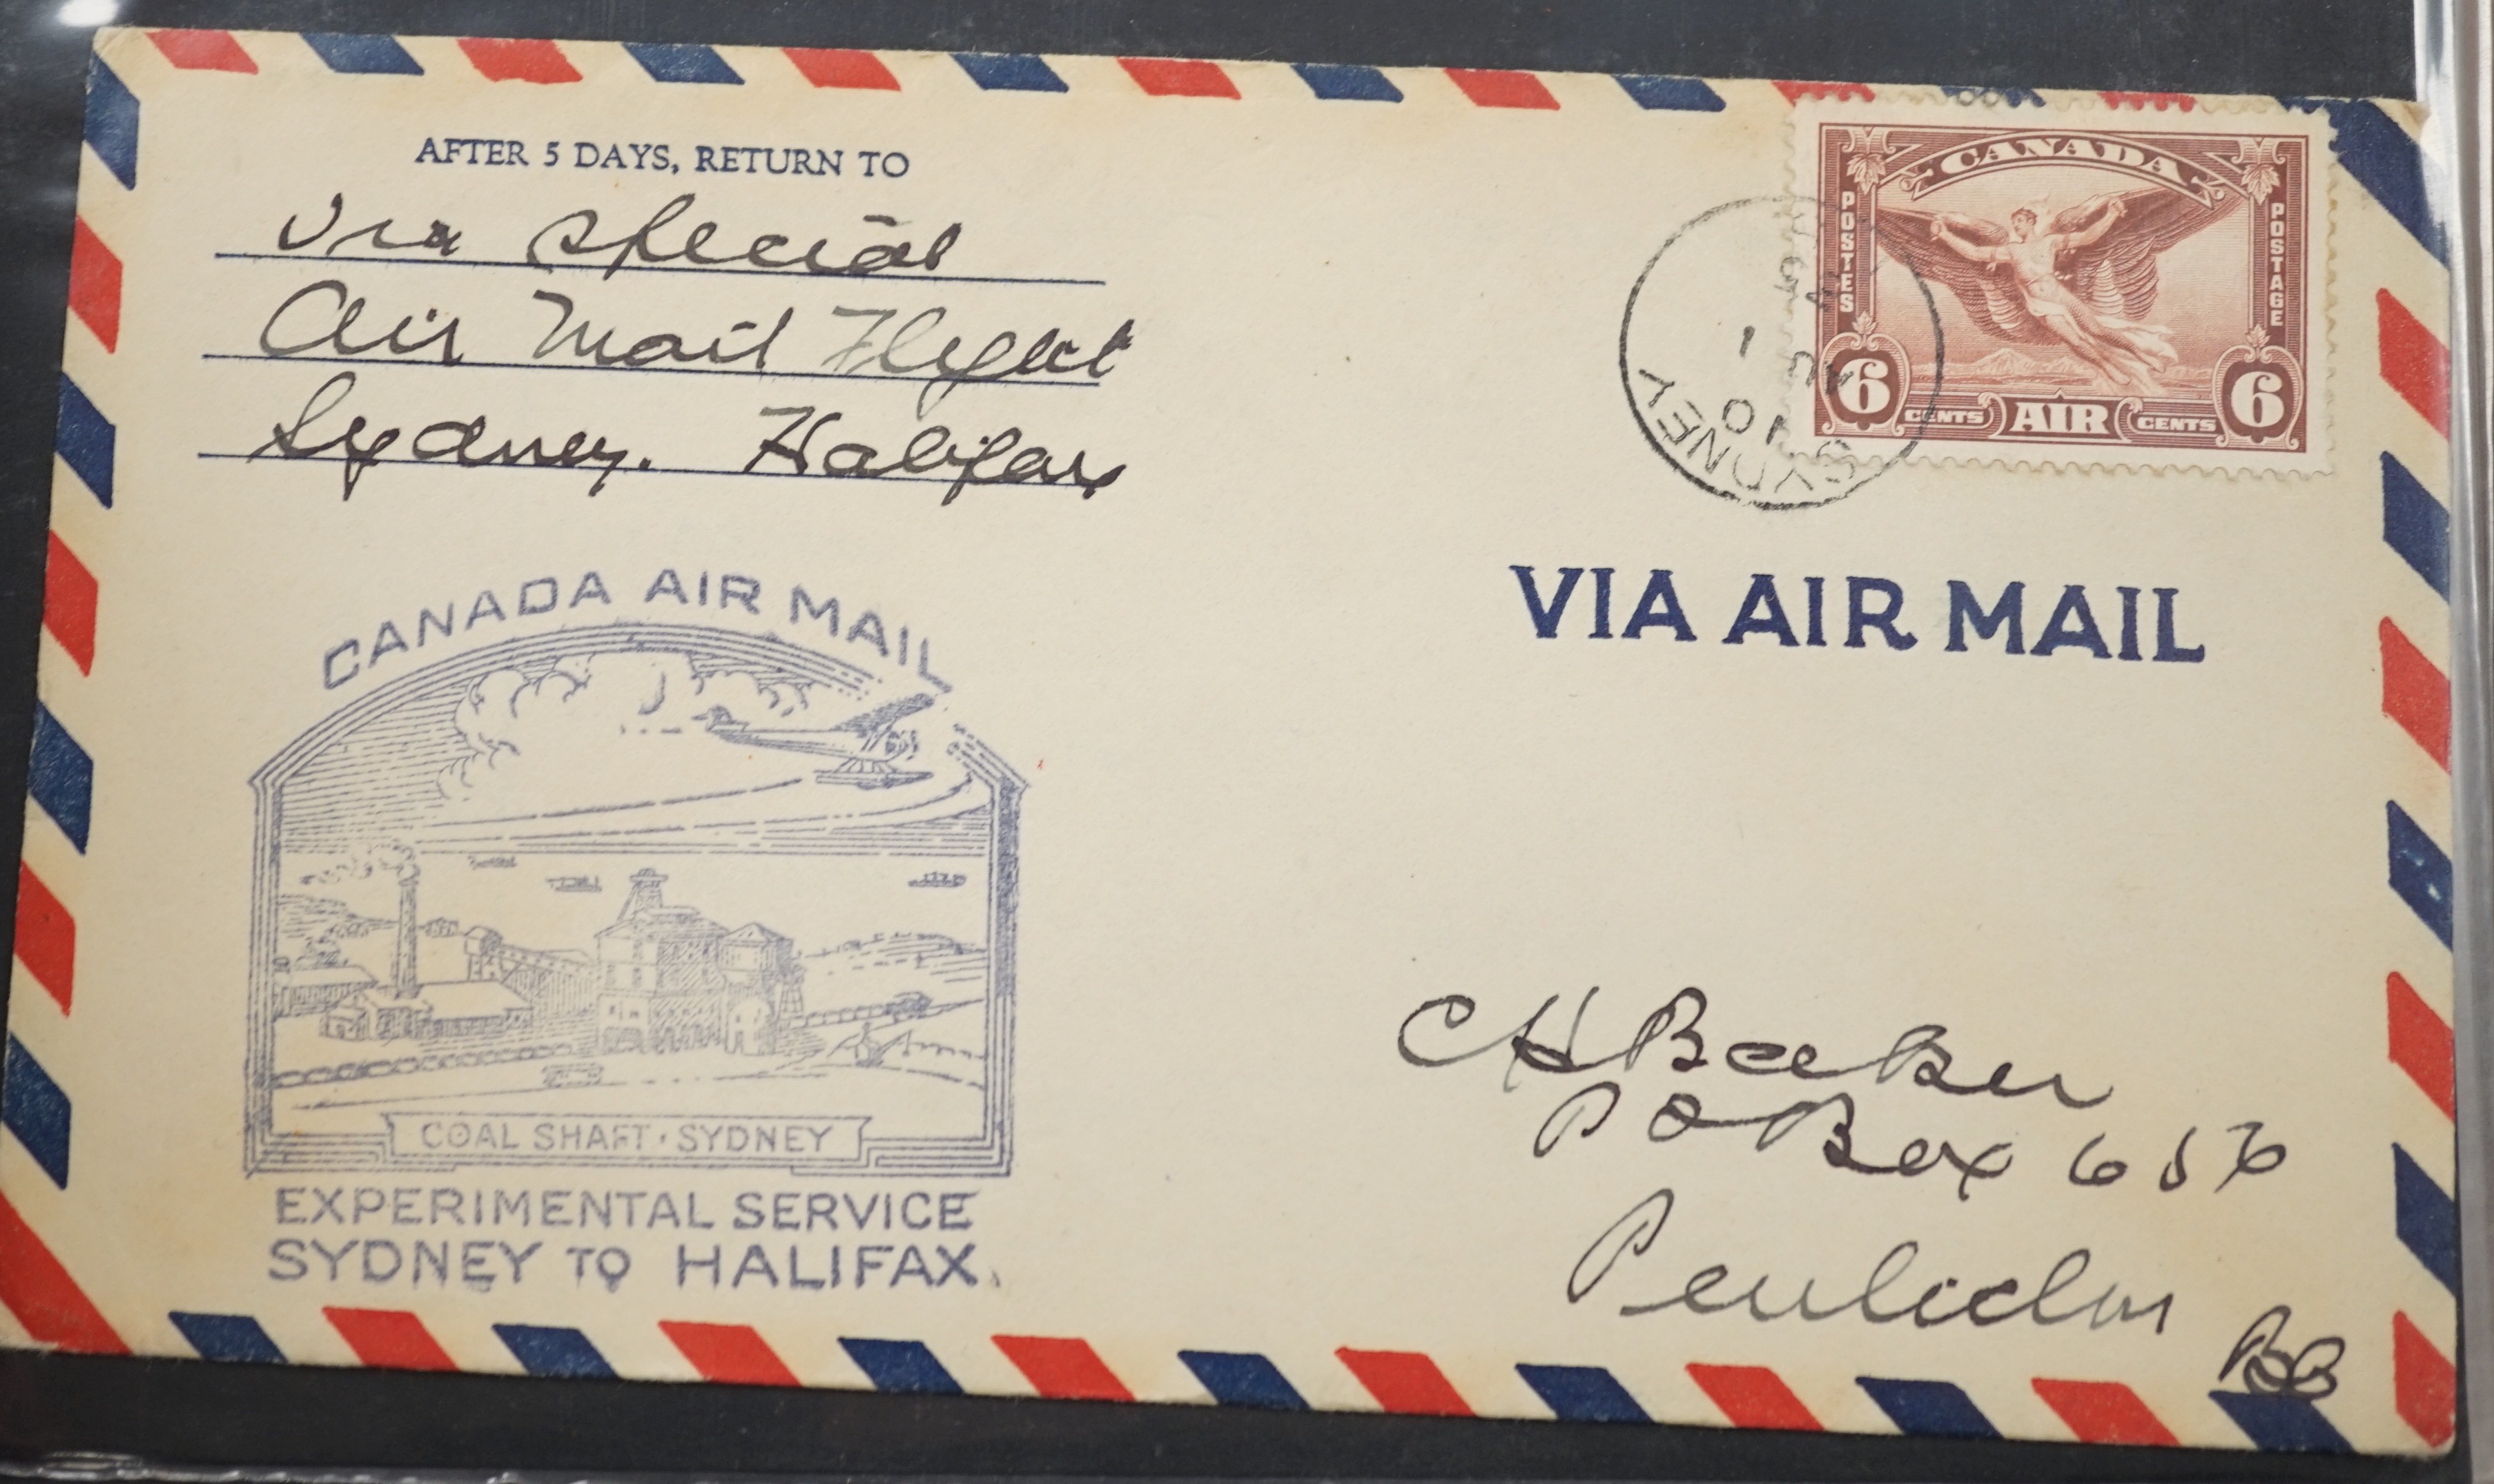 AFTER 5 DAYS, RETURN TO
Via Special
Air Mail Flight
Sydney. Halifax
CANADA
POSTES
POSTAGE
6 CENTS AIR CENTS 6
SYDNEY
10
VIA AIR MAIL
CANADA AIR MAIL
COAL SHAFT · SYDNEY
EXPERIMENTAL SERVICE
SYDNEY TO HALIFAX
C H Becker
P O Box